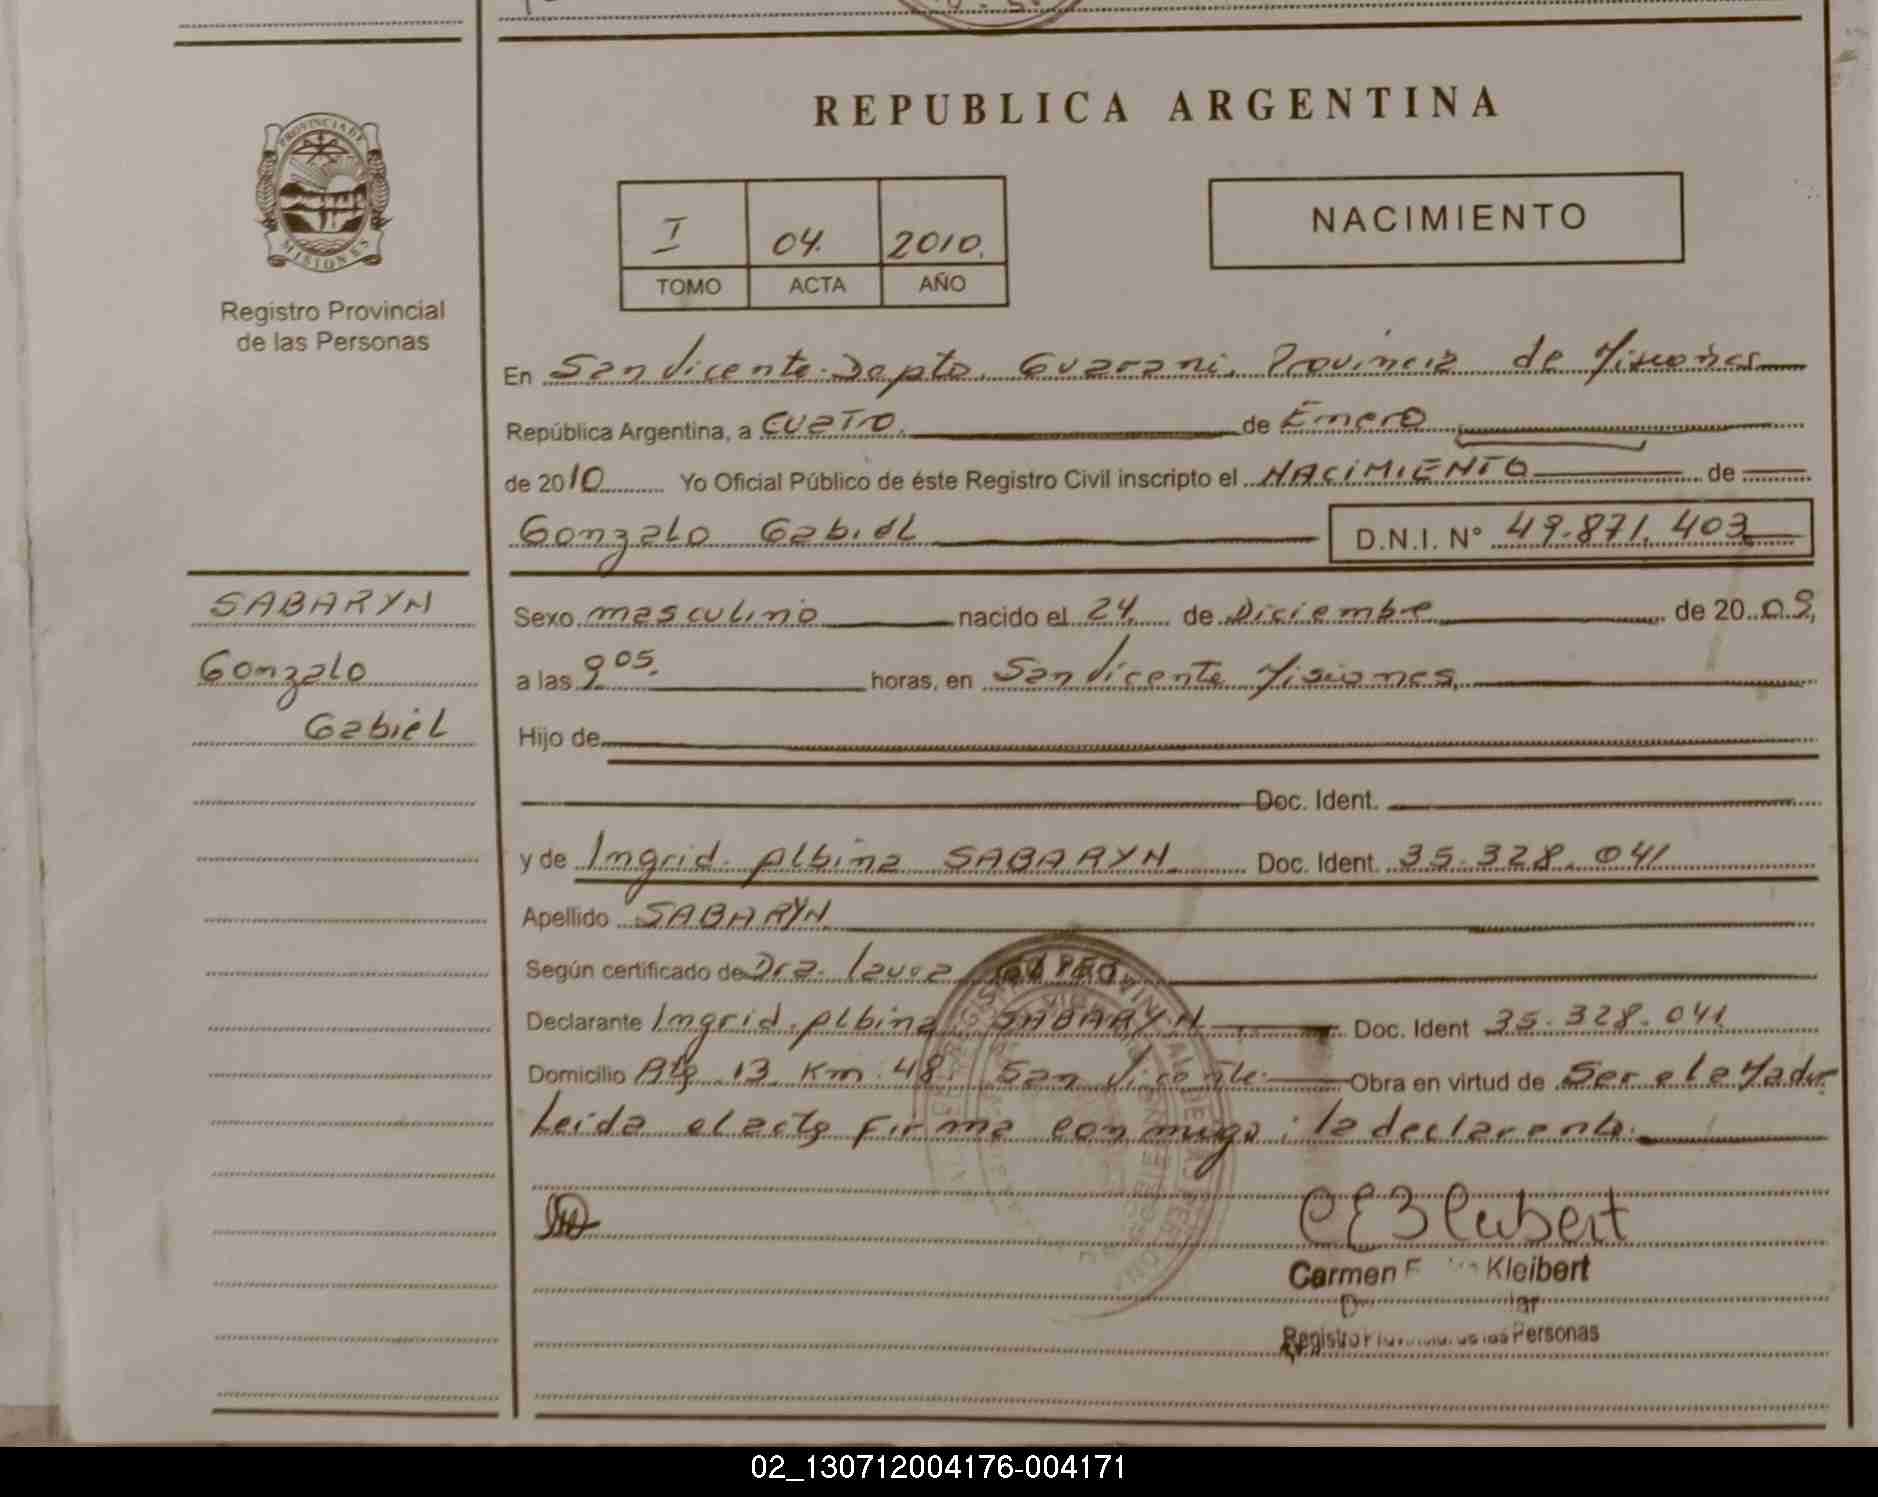 REPUBLICA ARGENTINA
PROVINCIA DE
MISIONES
Registro Provincial
de las Personas
I 04. 2010.
TOMO ACTA AÑO
NACIMIENTO
En San Vicente. Depto. Guarani. Provincia de Misiones
República Argentina, a cuatro. de Enero
de 2010 Yo Oficial Público de éste Registro Civil inscripto el NACIMIENTO de
Gonzalo Gabiel D.N.I. N° 49.871.403
SABARYN
Gonzalo
Gabiel
Sexo masculino nacido el 24 de Diciembre de 20 09,
a las 9 05. horas, en San Vicente Misiones,
Hijo de
Doc. Ident.
y de Ingrid Albina SABARYN Doc. Ident. 35.328.041
Apellido SABARYN
Según certificado de Dra. Laura
Declarante Ingrid Albina SABARYN Doc. Ident 35.328.041
Domicilio Rta 13 Km 48 San Vicente. Obra en virtud de Ser e la Madre
Leida el acta firma conmigo: la declarante.
CEKleibert
Carmen Kleibert
Registro de las Personas
02_130712004176-004171